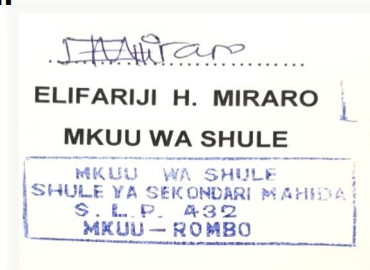 ELIFARIJI H. MIRARO
MKUU WA SHULE
MKUU WA SHULE
SHULE YA SEKONDARI MAHIDA
S. L. P. 432
MKUU – ROMBO